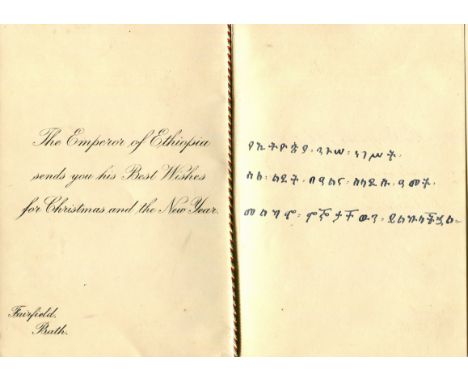 The Emperor of Ethiopia
sends you his Best Wishes
for Christmas and the New Year.
Fairfield,
Bath.
የኢትዮጵያ፡ ንጉሠ፡ ነገሥት፡
ስለ፡ ልደት፡ በዓልና፡ ስለአዲሱ፡ ዓመት፡
መልካም፡ ምኞታቸውን፡ ይልኩላችኋል።